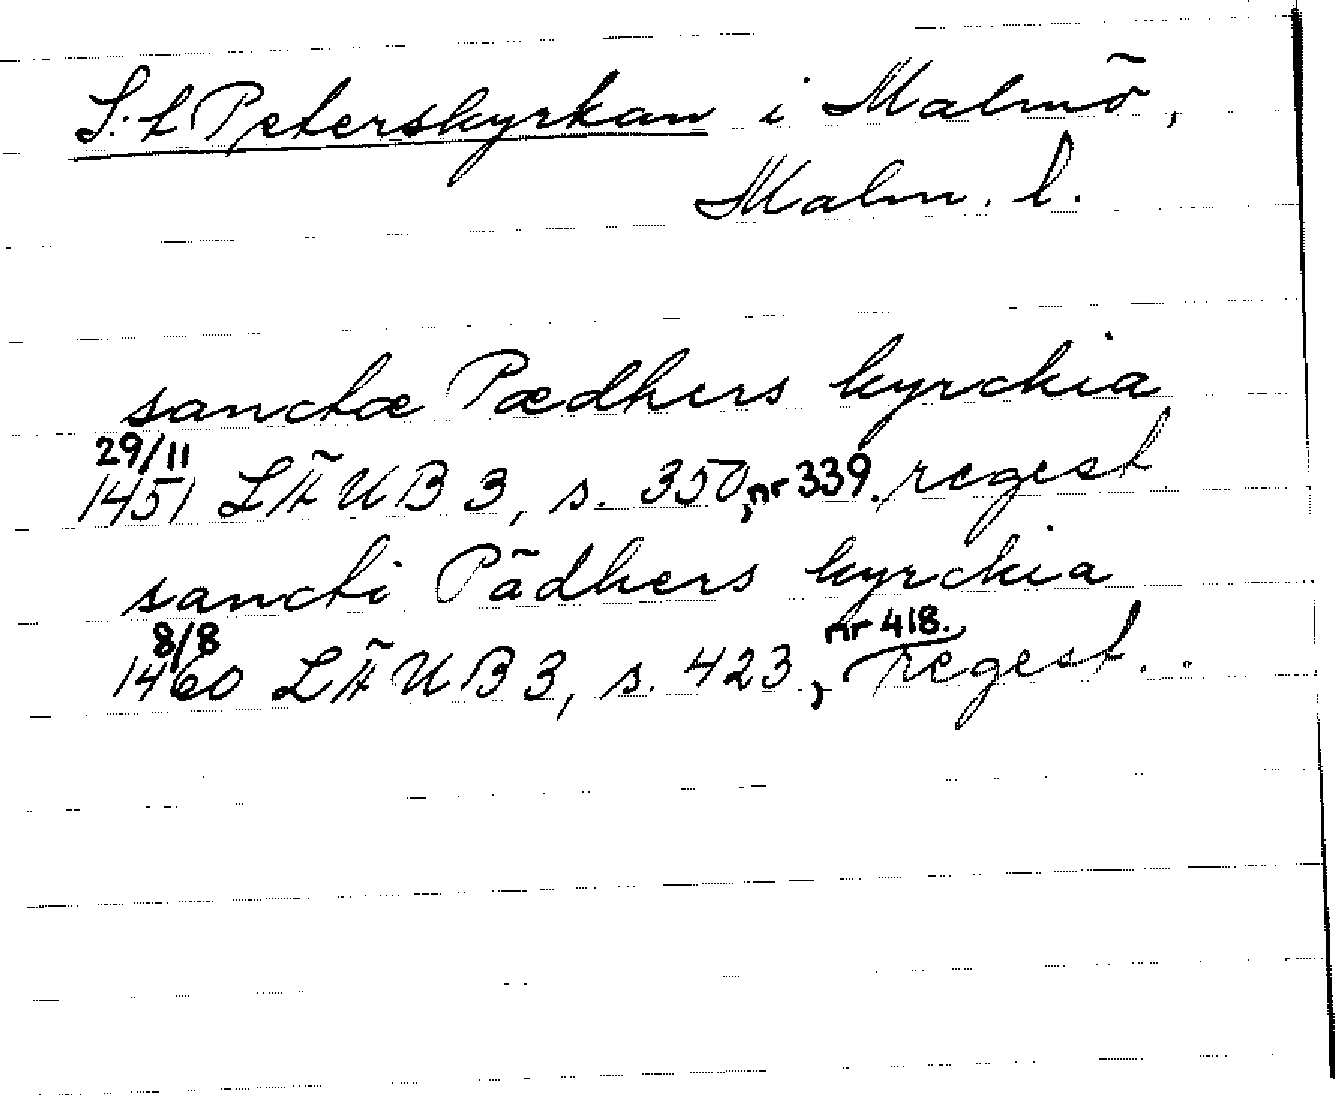 S:t Peterskyrkan i Malmö,
Malm. l.
sanctæ Pædhers kyrckia
29/11
1451 LÄUB 3, s. 350, nr 339. regest
sancti Pädhers kyrckia
8/8
nr 418.
1460 LÄUB 3, s. 423, regest.